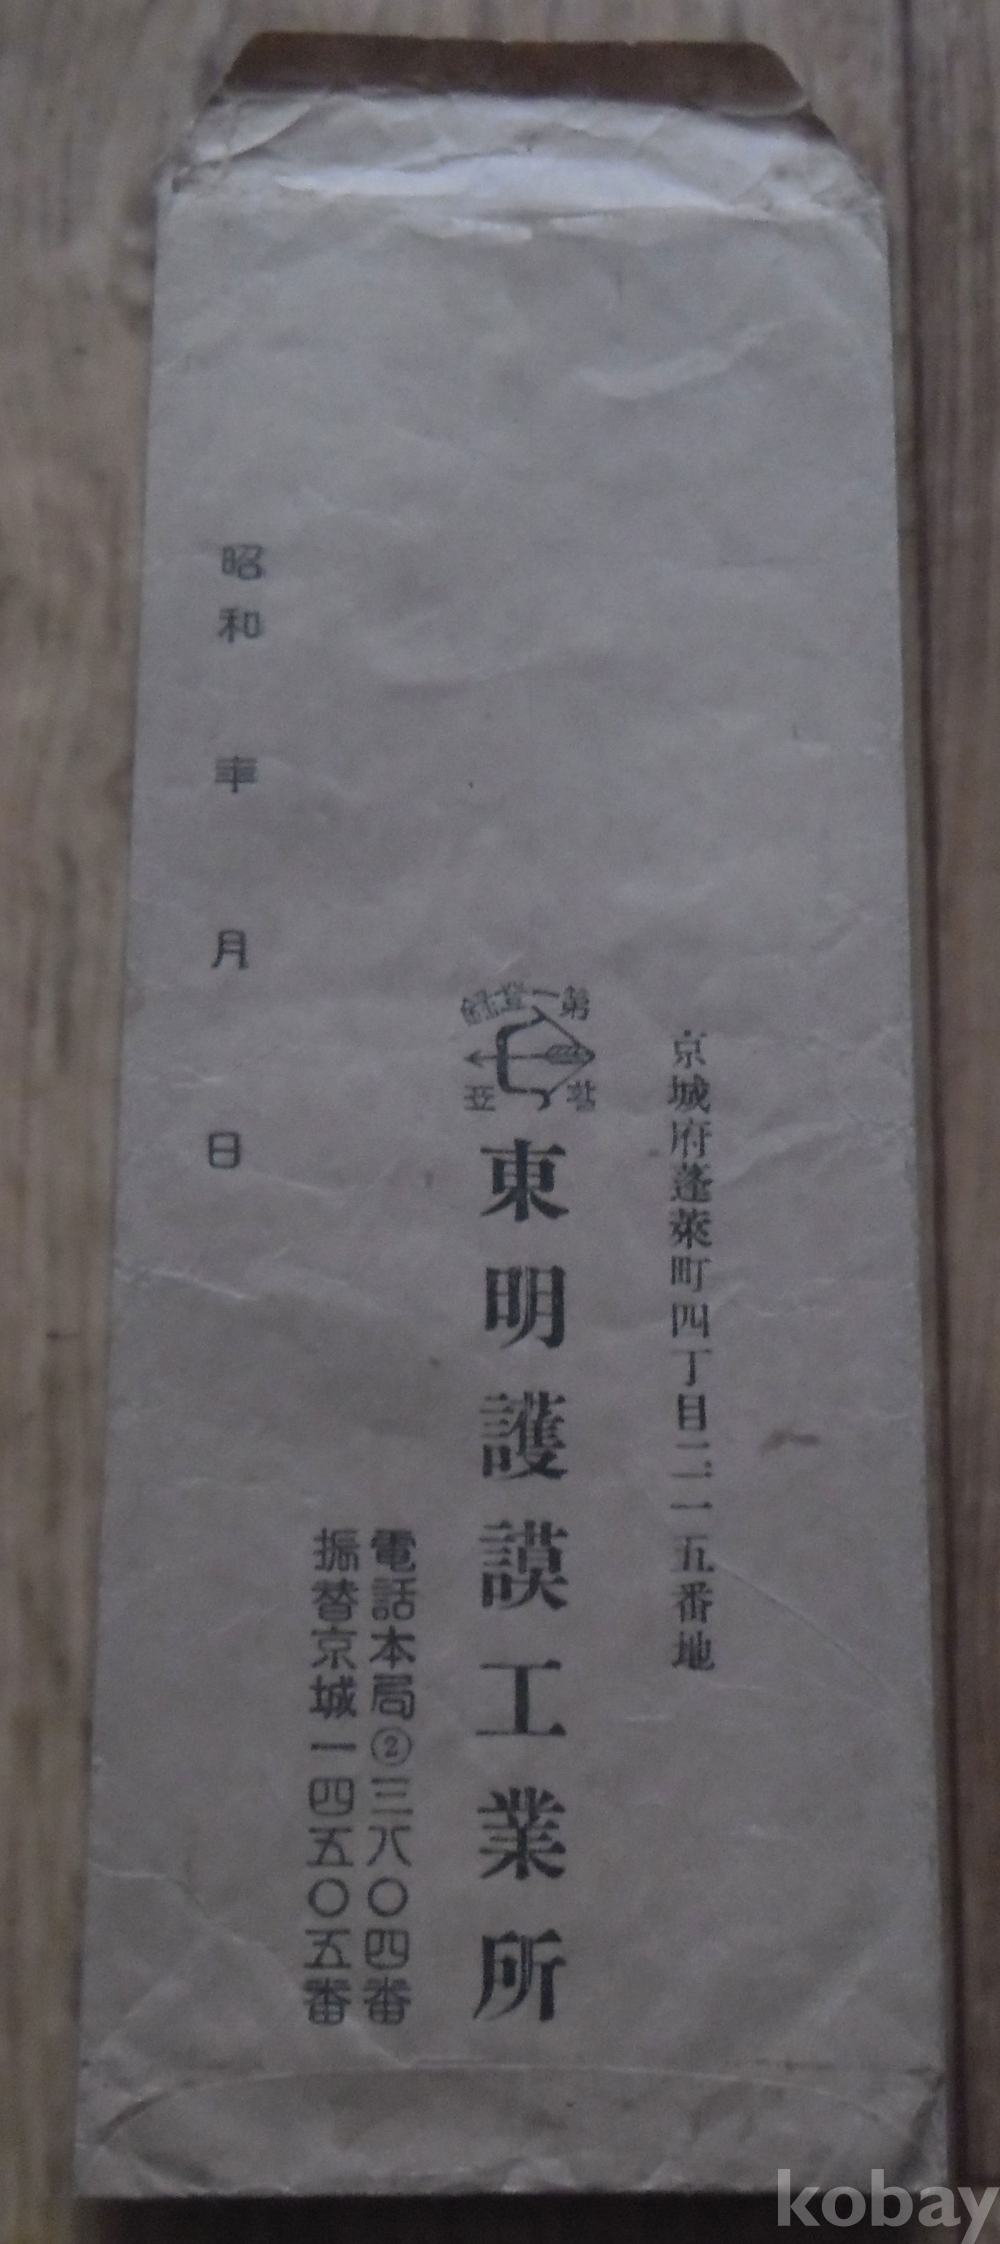 京城府蓬萊町四丁目二一五番地
第一登錄
商標
東明護謨工業所
電話本局②三八〇四番
振替京城一四五〇五番
昭和 年 月 日
kobay